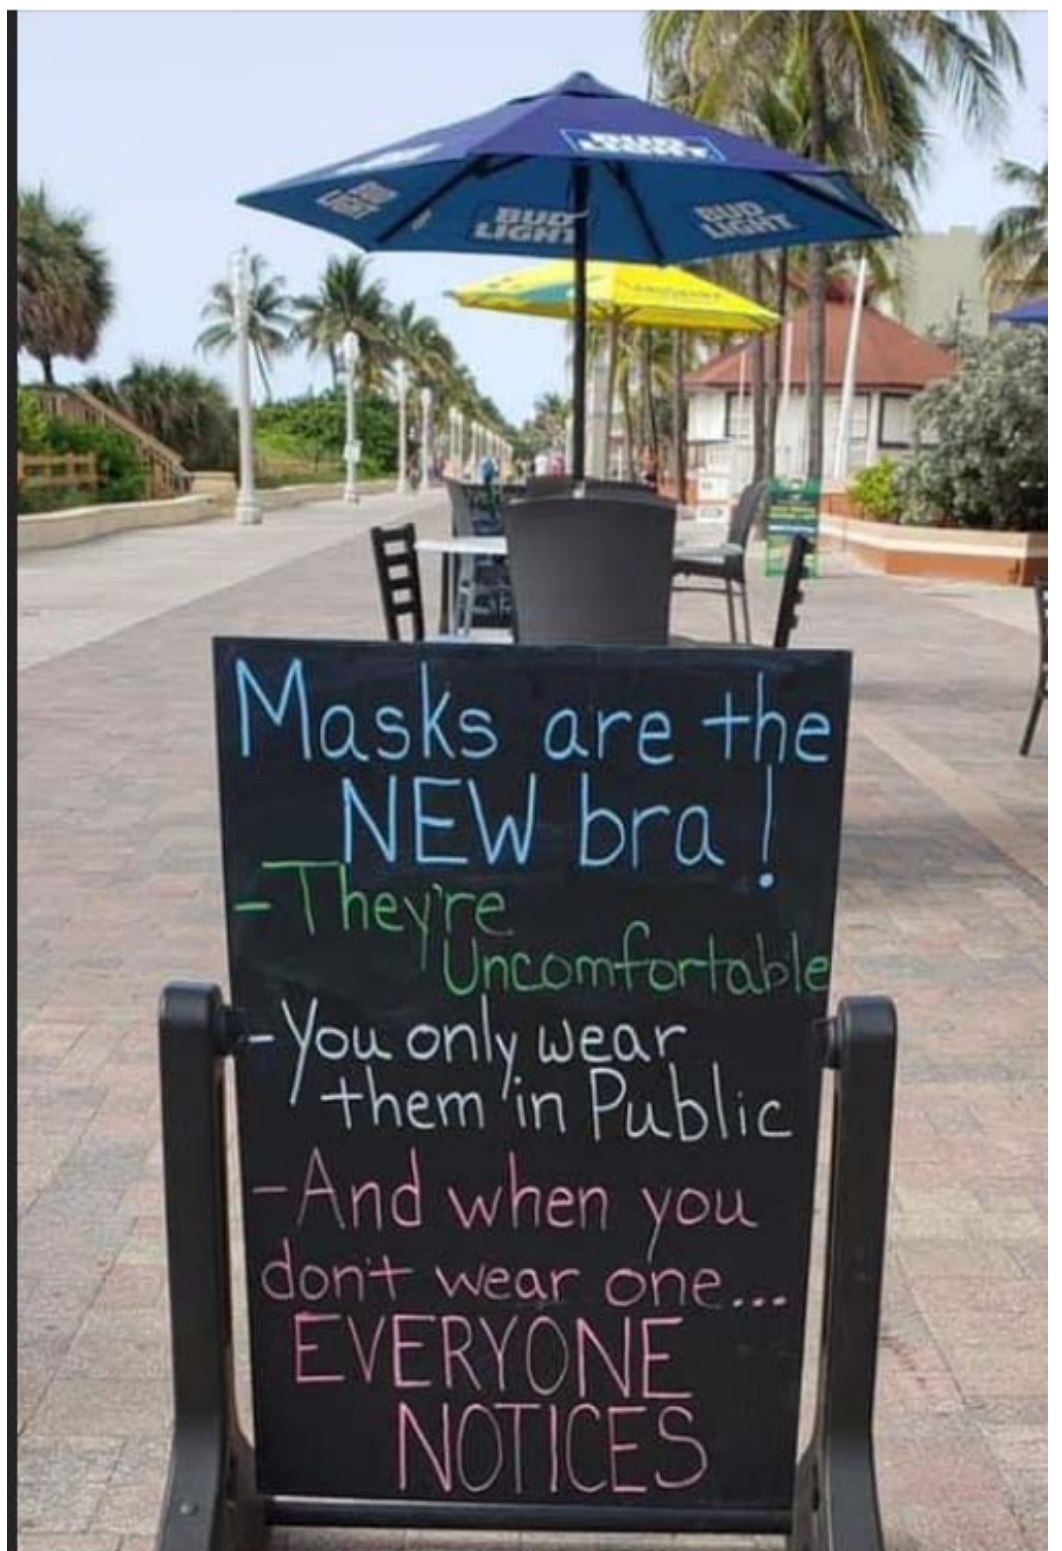 BUD
LIGHT
BUD
LIGHT
BUD
LIGHT
BUD
LIGHT
Masks are the
NEW bra!
-They're
Uncomfortable
-You only wear
them in Public
-And when you
don't wear one...
EVERYONE
NOTICES